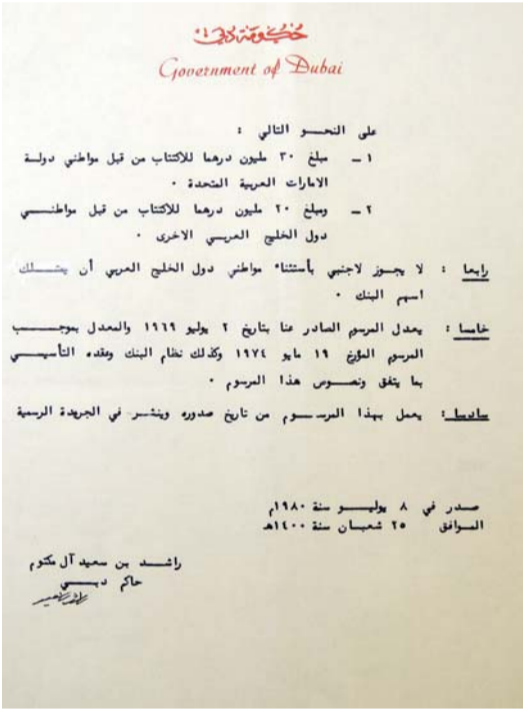 حكومة دبي
Government of Dubai
على النحـــو التالي :
١ ـ مبلغ ٣٠ مليون درهما للاكتتاب من قبل مواطني دولـة
الامارات العربية المتحدة .
٢ ـ ومبلغ ٢٠ مليون درهما للاكتتاب من قبل مواطنـــي
دول الخليج العربـــي الاخرى .
رابعا : لا يجــوز لاجنبي بأستثناء مواطني دول الخليج العربي أن يمتـــلك
اسهم البنك .
خامسا : يعدل المرسوم الصادر عنا بتاريخ ٢ يوليو ١٩٦٩ والمعدل بموجـــب
المرسوم المؤرخ ١٩ مايو ١٩٧٤ وكذلك نظام البنك وعقده التأسيســي
بما يتفق ونصــوص هذا المرسوم .
سادسا : يعمل بهذا المرســـوم من تاريخ صدوره وينشــر في الجريدة الرسمية
صــدر في ٨ يوليـــو سنة ١٩٨٠م
المــوافق ٢٥ شعبــان سنة ١٤٠٠هـ
راشـــد بن سعيد آل مكتوم
حاكم دبـــي